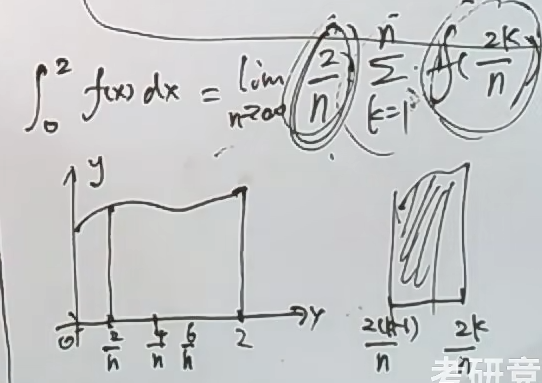 ∫₀² f(x) dx = lim n→∞ 2/n n Σ k=1 f(2k/n)
y
0 2/n 4/n 6/n 2 y
2(k-1)/n 2k/n
考研竟